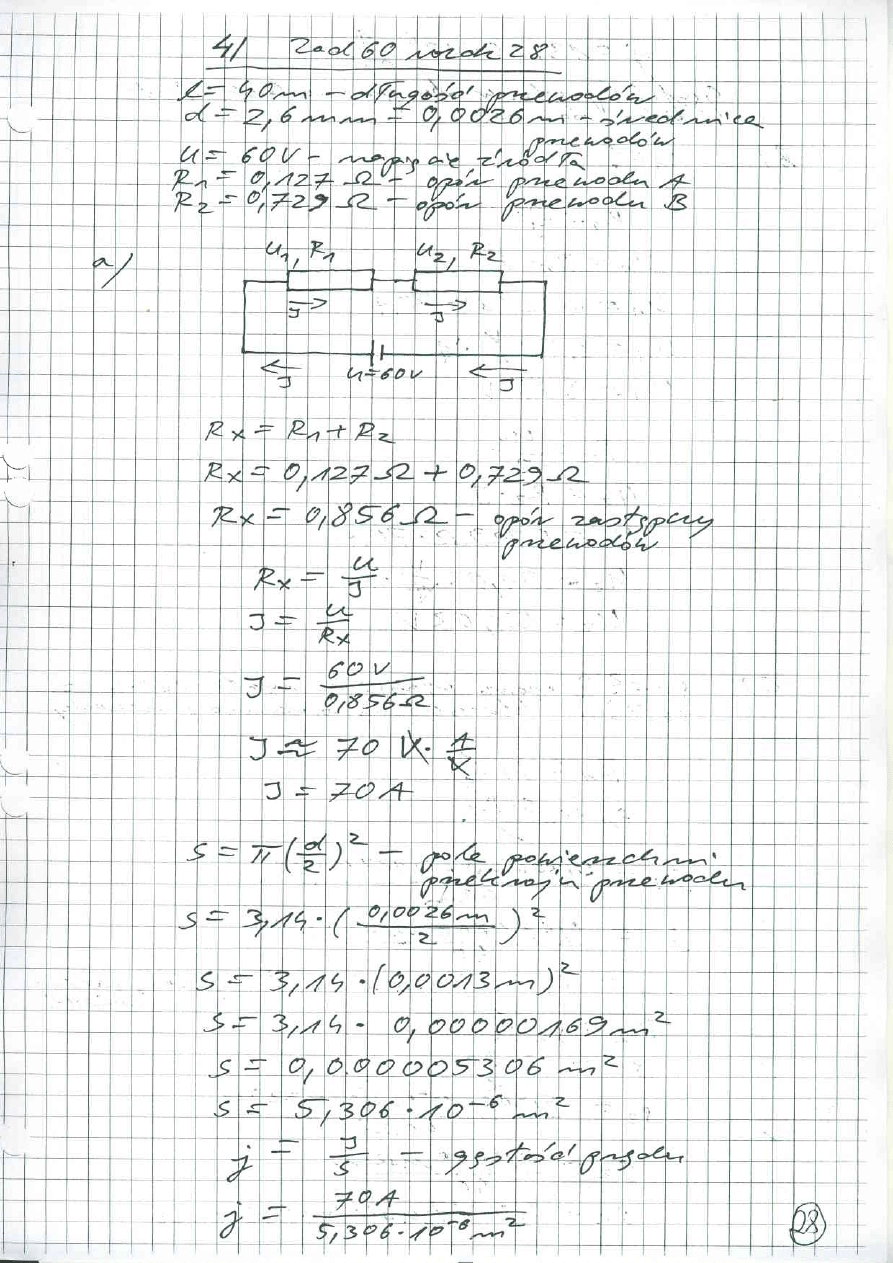 4/ Zad 60 rozdz 28
l = 40m - długość przewodów
d = 2,6mm = 0,0026m - średnica
przewodów
U = 60V - napięcie źródła
R1 = 0,127 Ω - opór przewodu A
R2 = 0,729 Ω - opór przewodu B
a)
U1, R1 U2, R2
J J
J U=60V J
Rx = R1 + R2
Rx = 0,127Ω + 0,729Ω
Rx = 0,856Ω - opór zastępczy
przewodów
Rx = U/J
J = U/Rx
J = 60V/0,856Ω
J ≈ 70 V · A/V
J = 70A
S = π(d/2)² - pole powierzchni
przekroju przewodu
S = 3,14 · (0,0026m/2)²
S = 3,14 · (0,0013m)²
S = 3,14 · 0,00000169m²
S = 0,000005306 m²
S = 5,306 · 10⁻⁶ m²
j = J/S - gęstość prądu
j = 70A/5,306·10⁻⁶m²
28